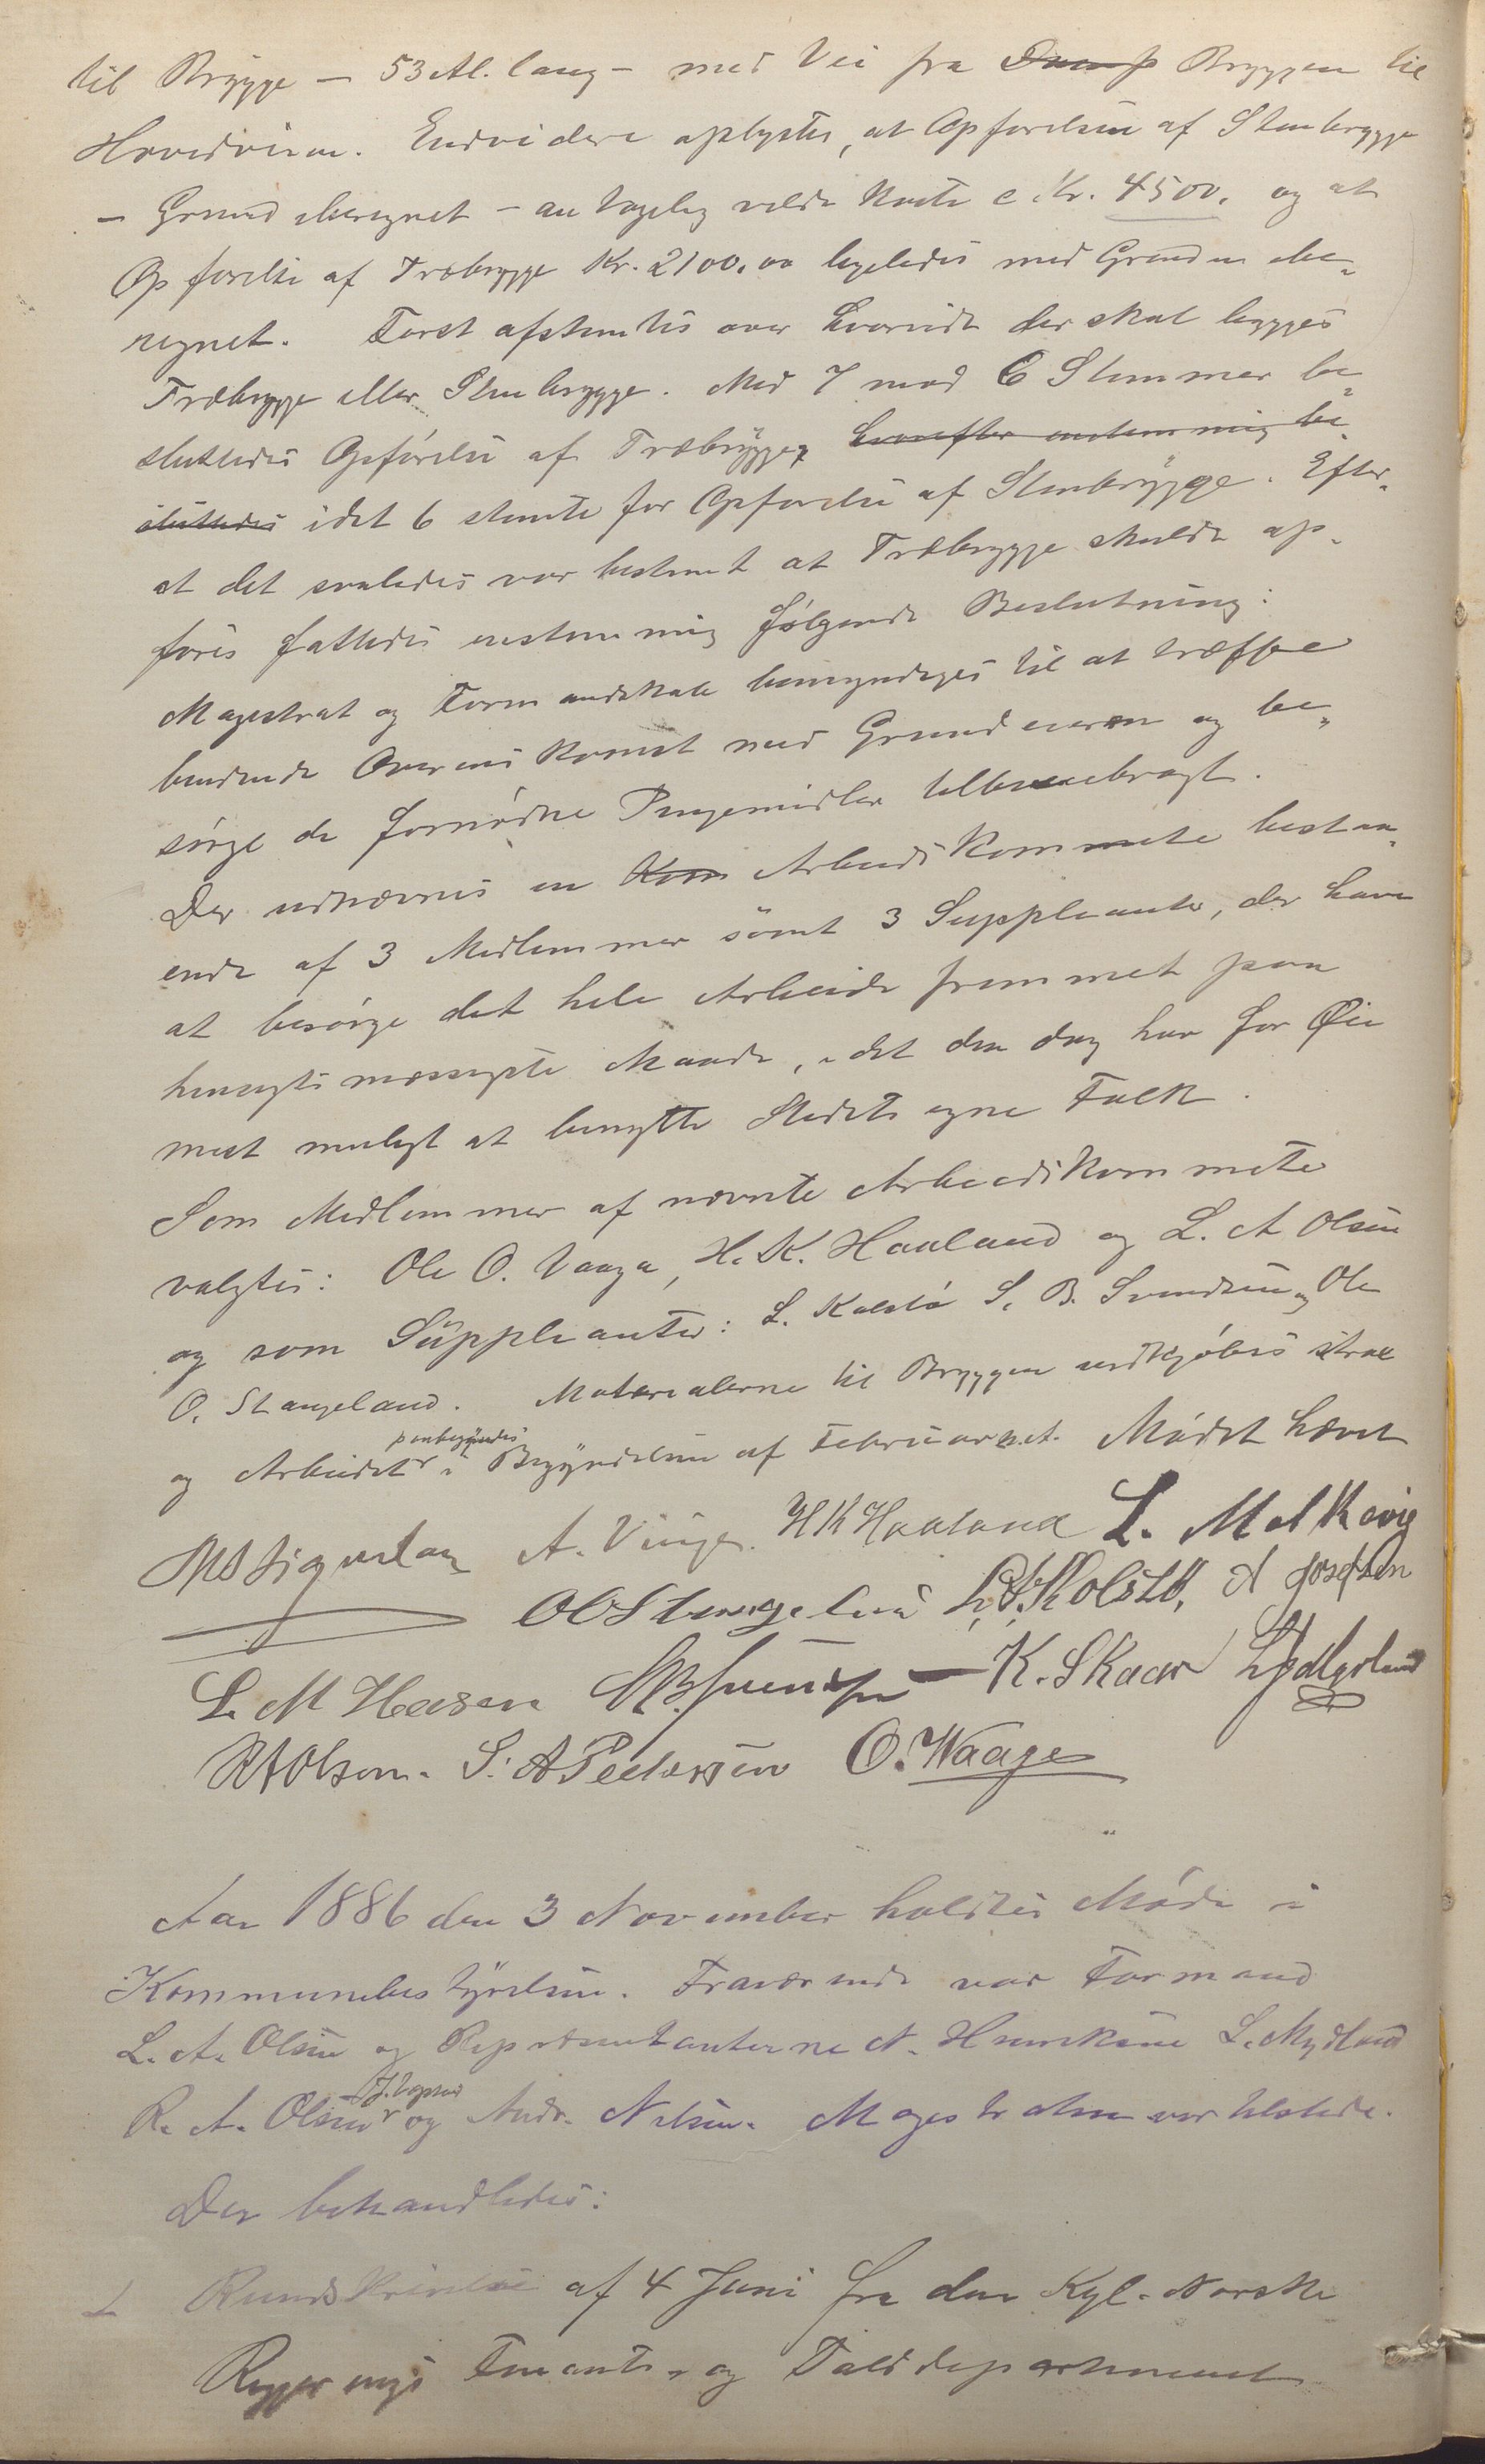 til Brygge – 53 Al. lang – med Vei fra Damp Bryggen til
Hovedveien. Endvidere oplystes, at Opførelsen af Stenbrygge
– Grund uberegnet – antagelig vilde koste c. Kr. 4500. og at
Opførelse af Træbrygge Kr. 2100,00 ligeledes med Grunden ube-
regnet. Først afstemtes over hvorvidt der skal bygges
Træbrygge eller Stenbrygge. Med 7 mod 6 Stemmer be-
sluttedes Opførelse af Træbrygge, hvorefter enstemmig be-
sluttedes idet 6 stemte for Opførelse af Stenbrygge. Efter-
at det saaledes var bestemt at Træbrygge skulde op-
føres fattedes enstemmig følgende Beslutning:
Magistrat og Formandskab bemyndiges til at træffe
bindende Overenskomst med Grundeieren og be-
sørge de fornødne Pengemidler tilveiebragt.
Der udnævnes en Kom Arbeidskommite bestaa-
ende af 3 Medlemmer samt 3 Suppleanter, der have
at besørge det hele Arbeide fremmet paa
hensigtsmæssigste Maade, idet den dog har for Øie
mest muligt at benytte Stedets egne Folk.
Som Medlemmer af nævnte Arbeidskommite
valgtes: Ole O. Vaaga, H. K. Haaland og L. A Olsen
og som Suppleanter: L. Kolstø S. B. Svendsen og Ole
O. Stangeland. Materialerne til Bryggen indkjøbes strax
og Arbeidet paabegyndes i Begyndelsen af Februar n.A. Mødet hævet
A. Vinje. H K Haaland L. Melkevig
O O Stangeland L. Kolstø, A Josefsen
L. M Hansen S B Svendsen – K. Skaar L Mydland
R A Olsen. S. A Pedersen O. Waage
Aar 1886 den 3 November holdtes Møde i
Kommunebestyrelsen. Fraværende var Formand
L. A. Olsen og Repræsentanterne N. Henriksen L. Mydland
R. A. Olsen og Andr. Nilsen. Magistraten var tilstede.
Der behandledes:
1 Rundskrivelse af 4 Juni fra den Kgl. Norske
Regjerings Finants- og Tolddepartement